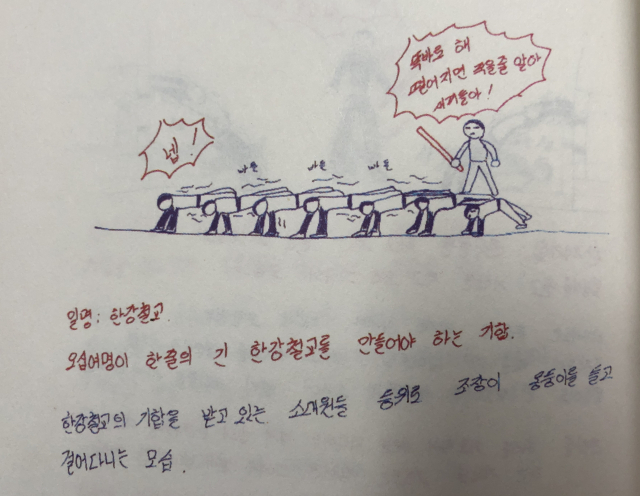 똑바로 해
떨어지면 죽을줄 알아
새끼들아!
넵!
바둘 바둘 바둘
일명: 한강철교.
오십여명이 한줄의 긴 한강철교를 만들어야 하는 기합.
한강철교의 기합을 받고 있는 소대원들 등위로 조장이 몽둥이를 들고
걸어다니는 모습.